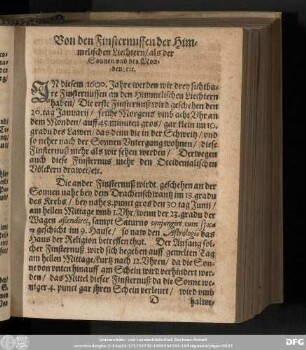 Von den Finsternussen der Him-
melischen Liechtern/ als der
Sonnen vnd des Mon-
den/ etc.
IN diesem 1600. Jahre werden wir drey sichtba-
re Finsternussen an den Himmelischen Liechtern
haben/ Die erste Finsternuß wird geschehen den
20. tag Januarij/ frühe Morgens vmb acht Vhr an
dem Monden/ auff 45. minuten gros/ gar klein im 10.
gradu des Lawen/ das denn die in der Schweitz/ vnd
so neher nach der Sonnen Vntergang wohnen/ diese
Finsternuß mehr als wir sehen werden/ Derwegen
auch diese Finsternus mehr den Occidentalischen
Völckern drawet/ etc.
Die ander Finsternuß wirdt geschehen an der
Sonnen nahe bey dem Drachenschwantz im 18. gradu
des Krebs/ bey nahe 8. punct gros den 30 tag Junij/
am hellen Mittage vmb 1. Vhr/ wenn der 23. gradu der
Wagen ascendiret, sampt Saturno conjungiret cum spica
geschicht im 9. Hause/ so nach den Astrologis das
Haus der Religion betreffen thut. Der Anfang sol-
cher Finsternuß wird sich begeben auff gemelten Tag
am hellen Mittage/ kurtz nach 12. Vhren/ da die Son-
ne von vnten hinauff am Schein wird verhindert wer-
den/ das Mittel dieser Finsternuß da die Sonne we-
niger 4. punct gar jhren Schein verleurt/ wird vmb
D
halwe